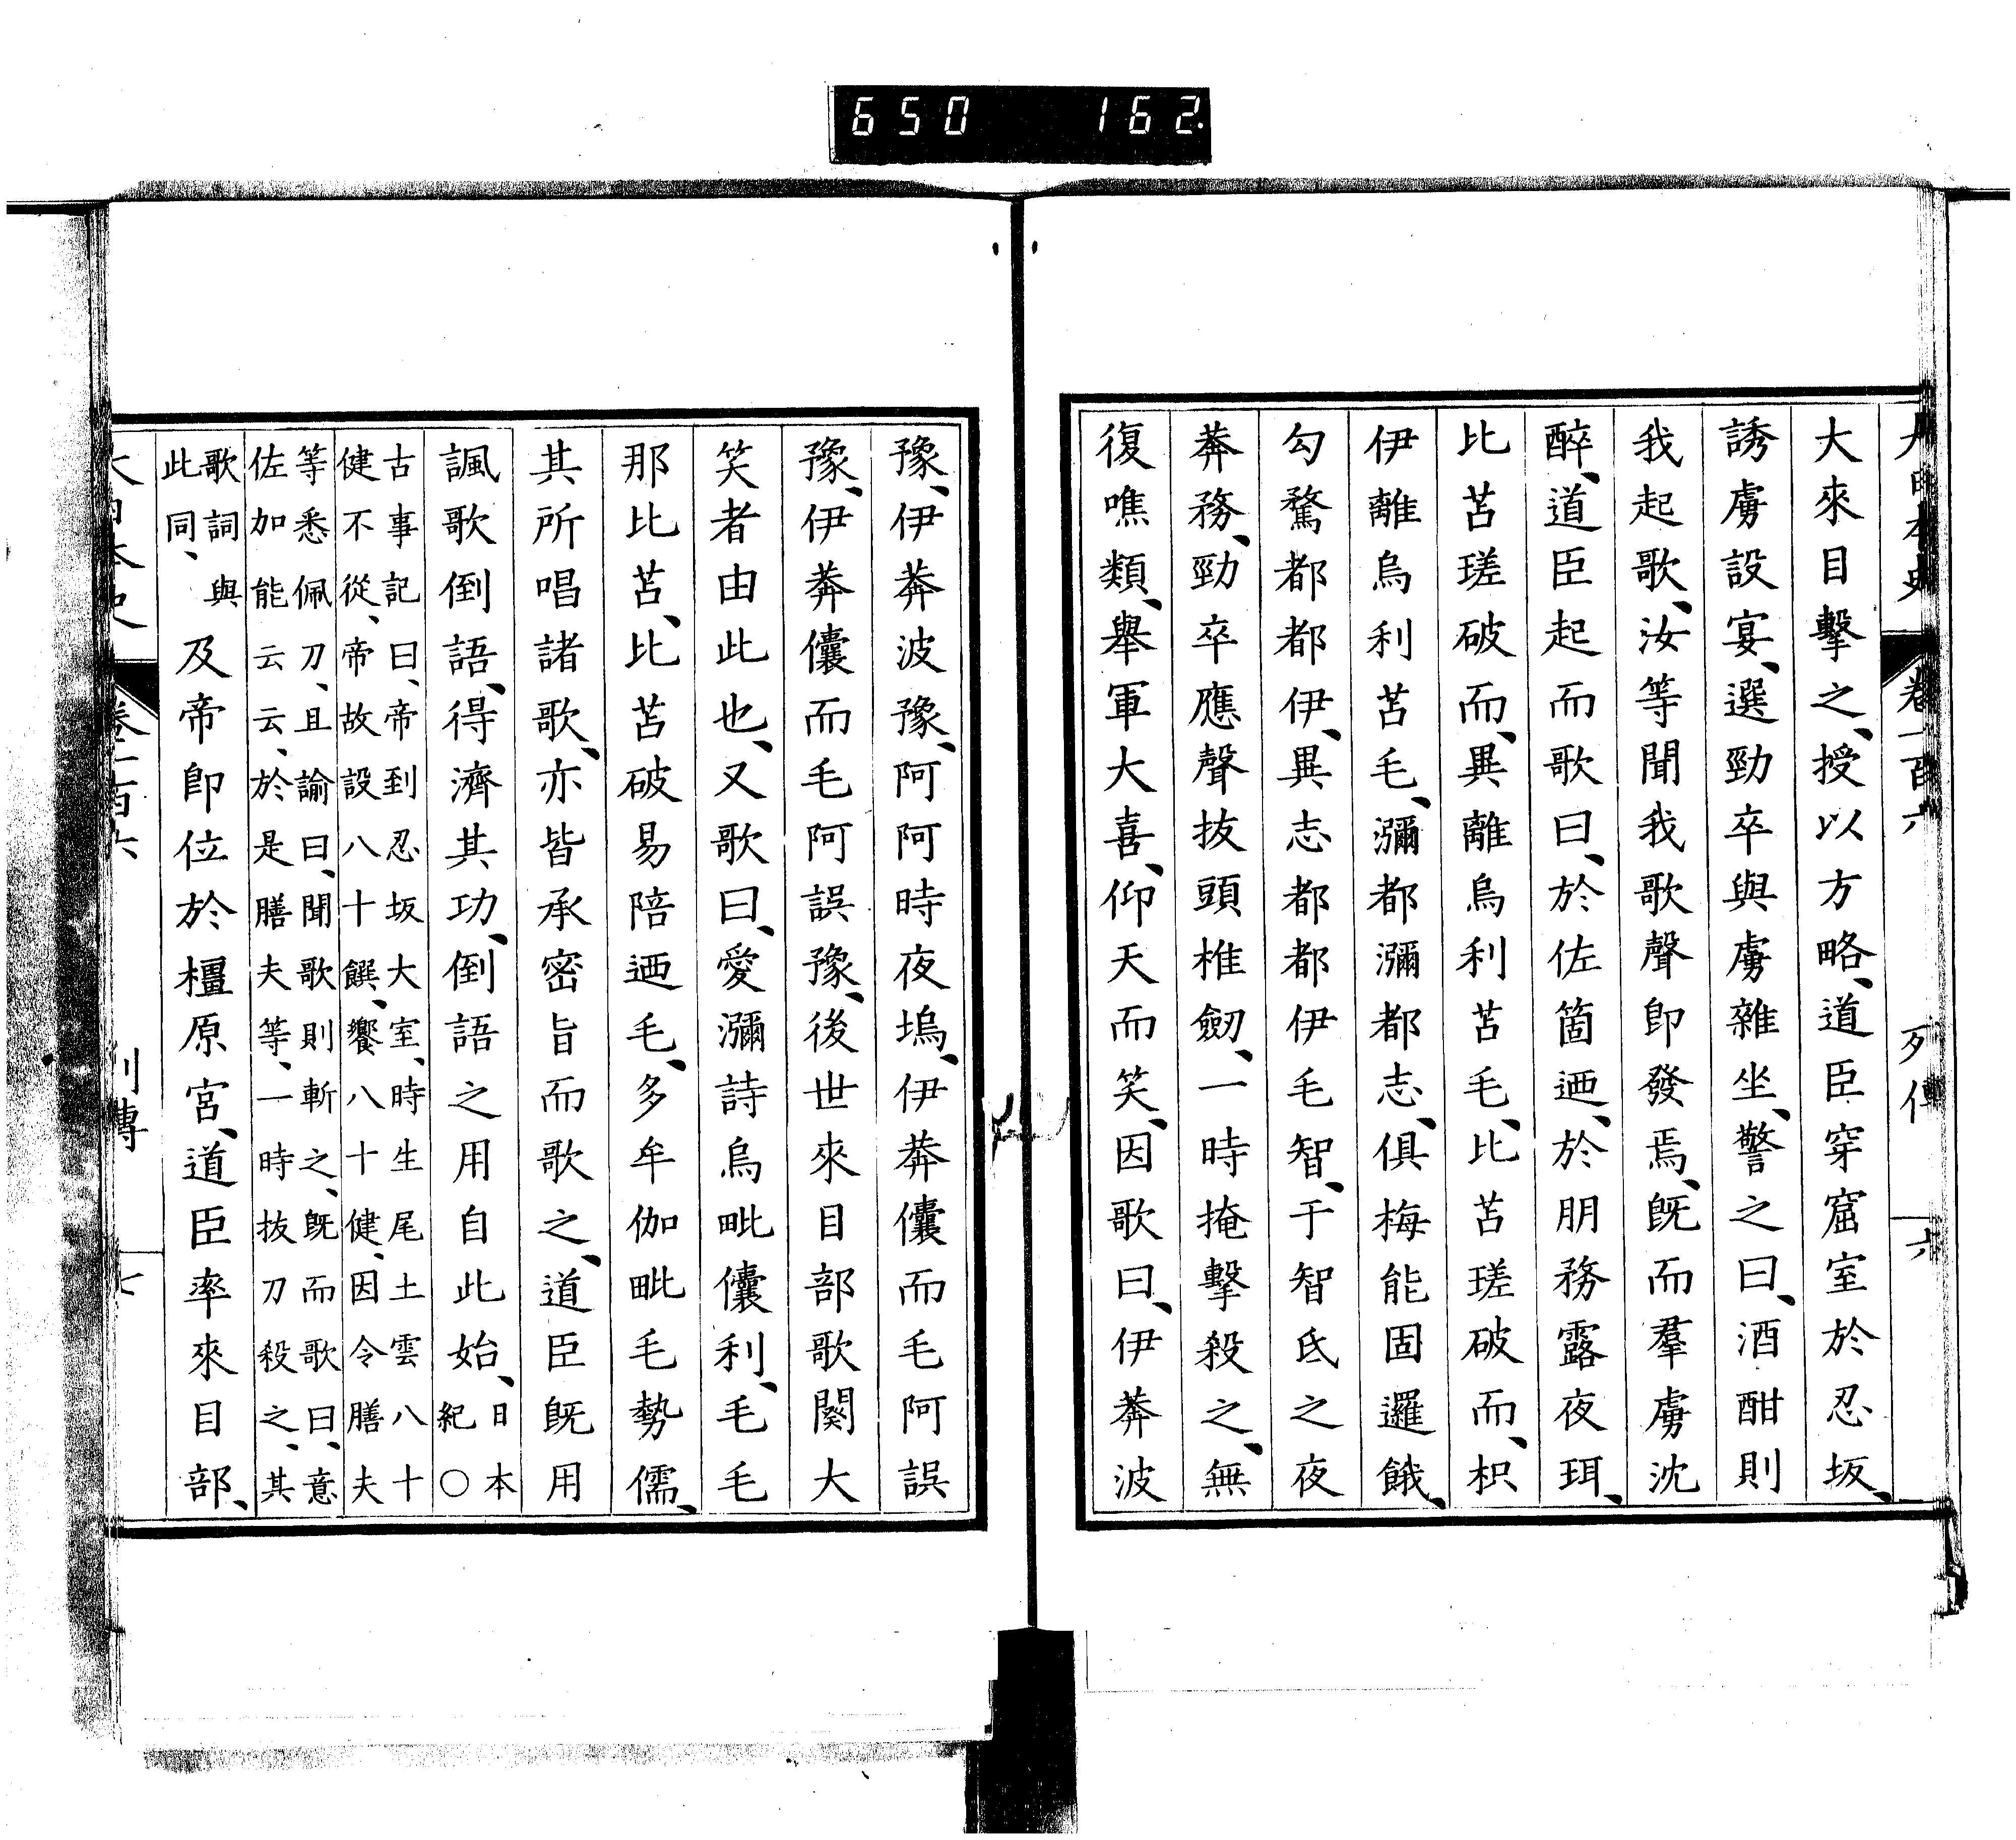 650 162.
大日本史 卷一百六 列傳 六
大來目擊之、授以方略、道臣穿窟室於忍坂、
誘虜設宴、選勁卒與虜雜坐、警之曰、酒酣則
我起歌、汝等聞我歌聲卽發焉、既而羣虜沈
醉、道臣起而歌曰、於佐箇迺、於朋務露夜珥、
比苫瑳破而、異離烏利苫毛、比苫瑳破而、枳
伊離烏利苫毛、瀰都瀰都志、倶梅能固邏餓、
勾騖都都伊、異志都都伊毛智、于智氐之夜
莾務、勁卒應聲拔頭椎劒、一時掩擊殺之、無
復噍類、舉軍大喜、仰天而笑、因歌曰、伊莾波
豫、伊莾波豫、阿阿時夜塢、伊莾儾而毛阿誤
豫、伊莾儾而毛阿誤豫、後世來目部歌闋大
笑者由此也、又歌曰、愛瀰詩烏毗儾利、毛毛
那比苫、比苫破易陪迺毛、多牟伽毗毛勢儒、
其所唱諸歌、亦皆承密旨而歌之、道臣既用
諷歌倒語、得濟其功、倒語之用自此始、日本紀○
古事記曰、帝到忍坂大室、時生尾土雲八十
健不從、帝故設八十饌、饗八十健、因令膳夫
等悉佩刀、且諭曰、聞歌則斬之、既而歌曰、意
佐加能云云、於是膳夫等、一時拔刀殺之、其
歌詞與此同、及帝卽位於橿原宮、道臣率來目部、
大日本史 卷一百六 列傳 七